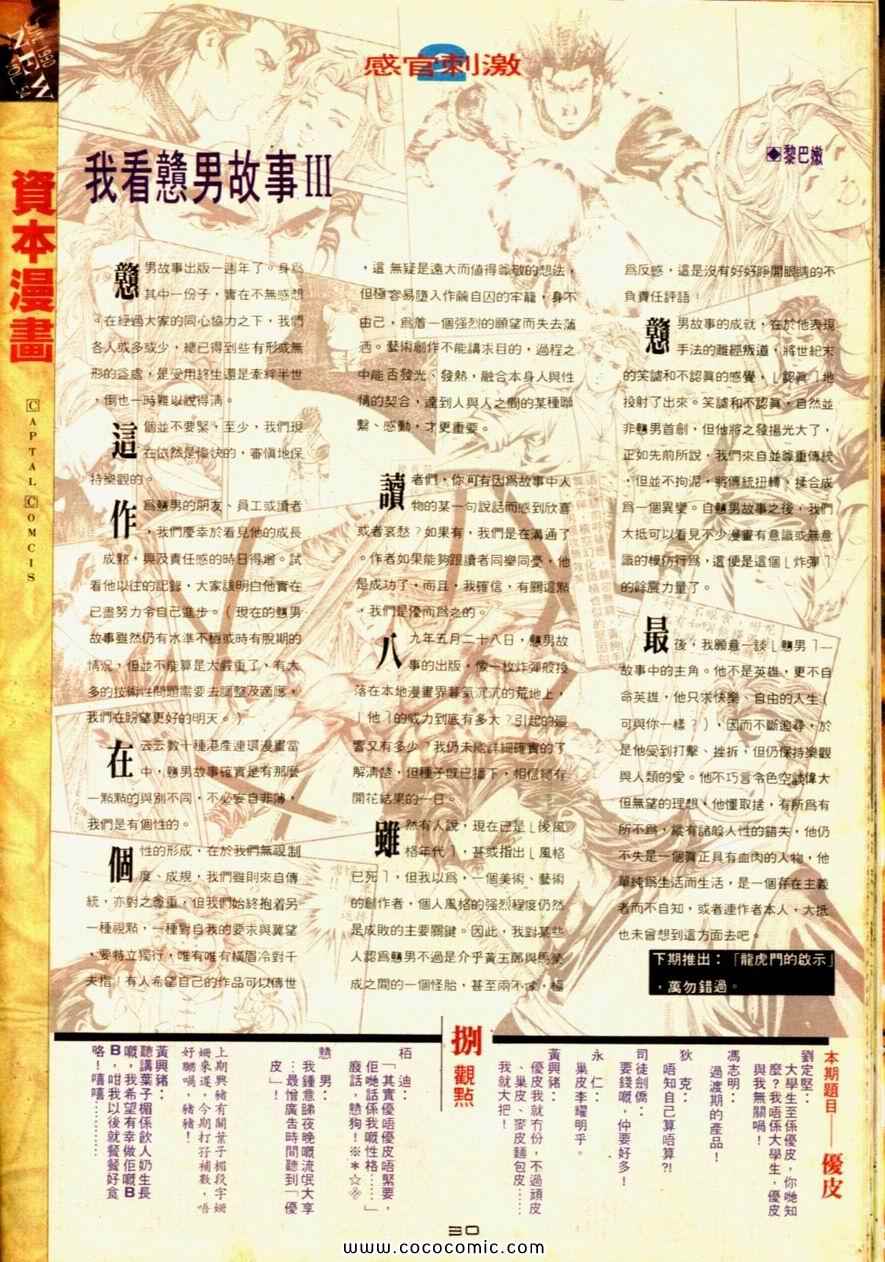 感官刺激
資本漫畫
CAPTAL COMCIS
我看戇男故事III
◆黎巴嫩
戇男故事出版一週年了。身爲
其中一份子，實在不無感想
。在經過大家的同心協力之下，我們
各人或多或少，總已得到些有形或無
形的益處，是受用終生還是牽絆半世
，倒也一時難以說得清。
這個並不要緊，至少，我們現
在依然是愉快的，審慎地保
持樂觀的。
作爲戇男的朋友、員工或讀者
，我們慶幸於看見他的成長
、成點，與及責任感的時日得增。試
看他以往的記錄，大家該明白他實在
已盡努力令自己進步。（現在的戇男
故事雖然仍有水準不穩或時有脫期的
情況，但並不能算是太嚴重了，有太
多的技術性問題需要去調整及適應，
我們在盼望更好的明天。）
在云云數十種港產連環漫畫當
中，戇男故事確實是有那麼
一點點的與別不同，不必妄自非薄，
我們是有個性的。
個性的形成，在於我們無視制
度、成規，我們雖則來自傳
統，亦對之尊重，但我們始終抱着另
一種視點，一種對自我的要求與冀望
，要特立獨行，唯有唯有橫眉冷對千
夫指！有人希望自己的作品可以傳世
，這無疑是遠大而值得尊敬的想法，
但極容易墮入作繭自囚的牢籠，身不
由己，爲着一個強烈的願望而失去蒲
洒。藝術創作不能講求目的，過程之
中能否發光、發熱，融合本身人與性
情的契合，達到人與人之間的某種聯
繫、感動，才更重要。
讀者們，你可有因爲故事中人
物的某一句說話而感到欣喜
或者哀愁？如果有，我們是在溝通了
。作者如果能夠跟讀者同樂同憂，他
是成功了，而且，我確信，有關這點
，我們是優而爲之的。
八九年五月二十八日，戇男故
事的出版，像一枚炸彈般投
落在本地漫畫界暮氣沉沉的荒地上，
「他」的威力到底有多大？引起的迴
響又有多少？我仍未能詳細確實的了
解清楚，但種子既已播下，相信總有
開花結果的一日。
雖然有人說，現在已是「後風
格年代」，甚或指出「風格
已死」，但我以爲，一個美術、藝術
的創作者，個人風格的强烈程度仍然
是成敗的主要關鍵。因此，我對某些
人認爲戇男不過是介乎黃玉郎與馬榮
成之間的一個怪胎，甚至兩不像，極
爲反感，這是沒有好好睜開眼睛的不
負責任評語！
戇男故事的成就，在於他表現
手法的離經叛道，將世紀末
的笑謔和不認眞的感覺，「認眞」地
投射了出來。笑謔和不認眞，自然並
非戇男首創，但他將之發揚光大了，
正如先前所說，我們來自並尊重傳統
，但並不拘泥，將傳統扭轉、揉合成
爲一個異變。自戇男故事之後，我們
大抵可以看見不少漫畫有意識或無意
識的模仿行爲，這便是這個「炸彈」
的餘震力量了。
最後，我願意一談「戇男」—
故事中的主角。他不是英雄，更不自
命英雄，他只求快樂、自由的人生（
可與你一樣？），因而不斷追尋，於
是他受到打擊、挫拆，但仍保持樂觀
與人類的愛。他不巧言令色空談偉大
但無望的理想，他懂取捨，有所爲有
所不爲，縱有諸般人性的錯失，他仍
不失是一個眞正具有血肉的人物，他
單純爲生活而生活，是一個存在主義
者而不自知，或者連作者本人，大抵
也未曾想到這方面去吧。
下期推出：「龍虎門的啟示」
，萬勿錯過。
本期題目——優皮
劉定堅：
大學生至係優皮，你哋知
麼？我唔係大學生，優皮
與我無關喎！
馮志明：
過渡期的產品！
狄　克：
唔知自己算唔算?!
司徒劍僑：
要錢嘅，仲要好多！
永　仁：
巢皮李耀明乎。
黃興豬：
優皮我就冇份，不過頑皮
、巢皮、麥皮麵包皮……
我就大把！
捌觀點
栢　迪：
「其實優唔優皮唔緊要，
佢哋話係我嘅性格……」
廢話，戇狗！※＊☆※
戇　男：
我鍾意睇夜晚嘅流氓大享
…最憎廣告時間聽到「優
皮」！
上期興豬有關葉子楣段字姍
姍來遲，今期打孖補數，唔
好嬲喎，豬豬！
黃興豬：
聽講葉子楣係飲人奶生長
嘅，我希望有幸做佢嘅B
B，咁我以後就餐餐好食
咯！嘻嘻………
30
www.cococomic.com